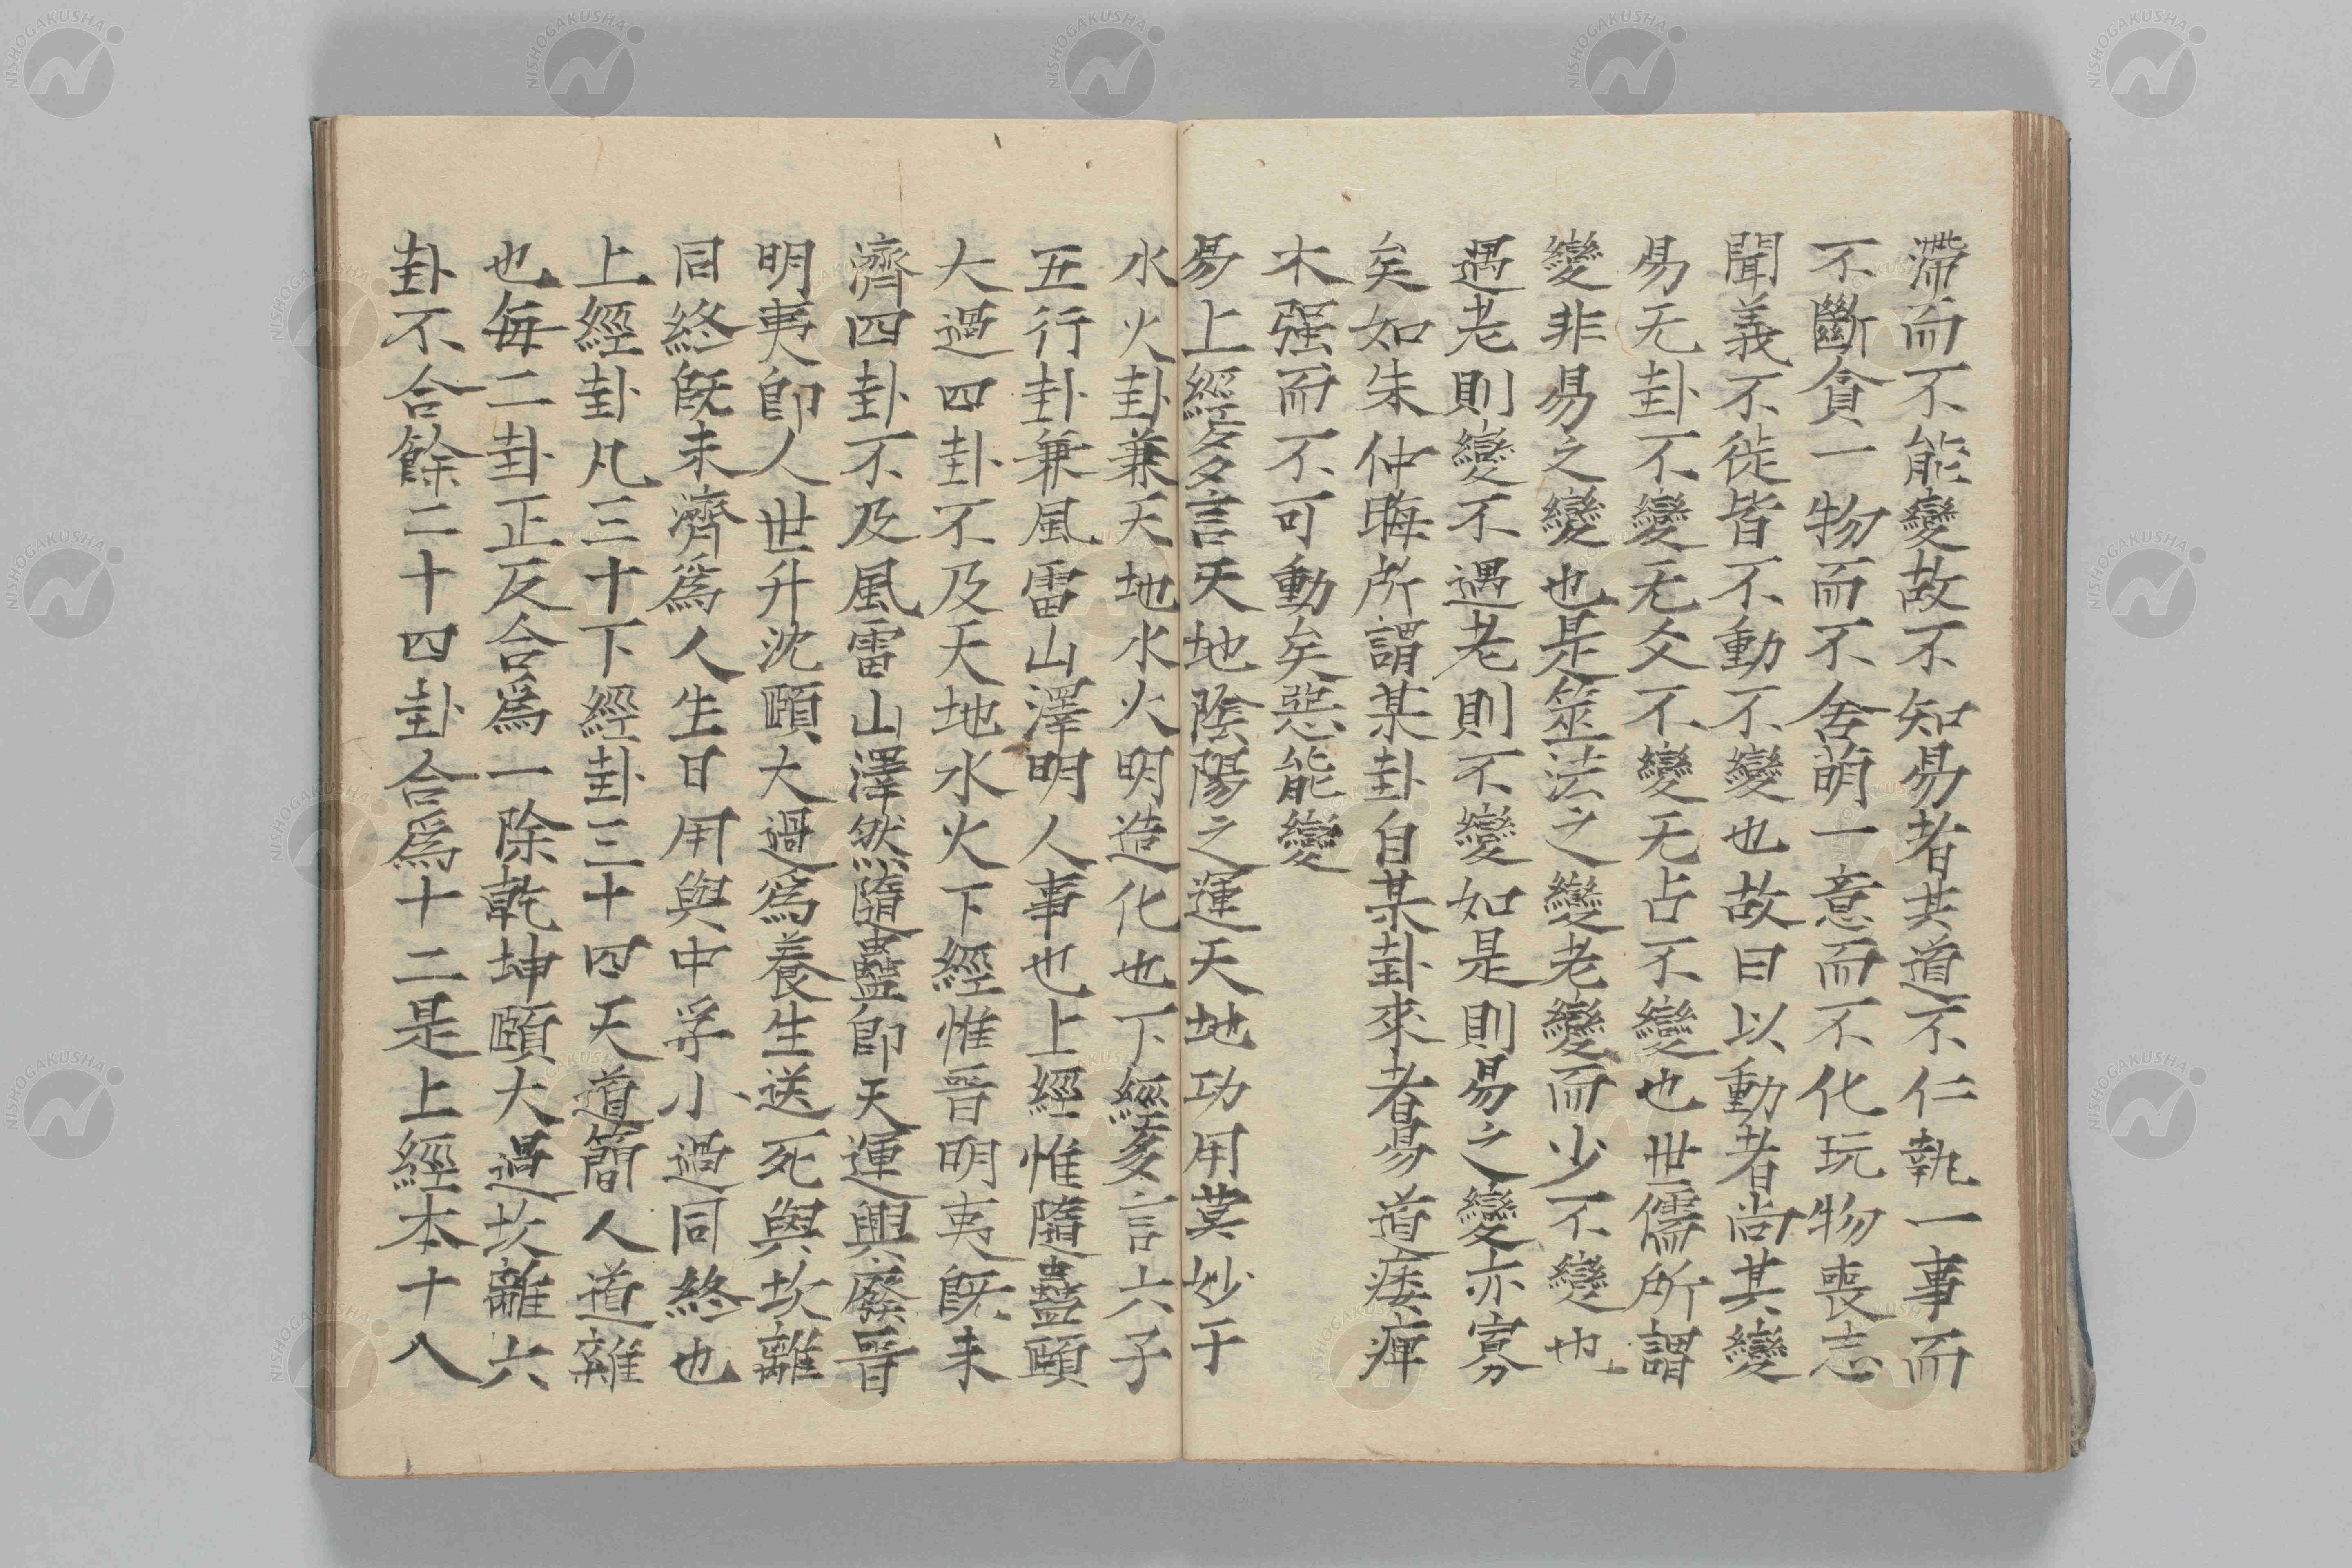 滯而不能變故不知易者其道不仁執一事而
不斷貪一物而不舍萌一意而不化玩物喪志
聞義不徙皆不動不變也故曰以動者尚其變
易无卦不變无爻不變无占不變也世儒所謂
變非易之變也是筮法之變老變而少不變也
遇老則變不遇老則不變如是則易之變亦寡
矣如朱仲晦所謂某卦自某卦來者易道痿痺
木强而不可動矣惡能變
易上經多言天地陰陽之運天地功用莫妙于
水火卦兼天地水火明造化也下經多言六子
五行卦兼風雷山澤明人事也上經惟隨蠱頤
大過四卦不及天地水火下經惟晉明夷既未
濟四卦不及風雷山澤然隨蠱卽天運興廢晉
明夷卽人世升沈頤大過爲養生送死與坎離
同終既未濟爲人生日用與中孚小過同終也
上經卦凡三十下經卦三十四天道簡人道雜
也每二卦正反合爲一除乾坤頤大過坎離六
卦不合餘二十四卦合爲十二是上經本十八
NISHOGAKUSHA